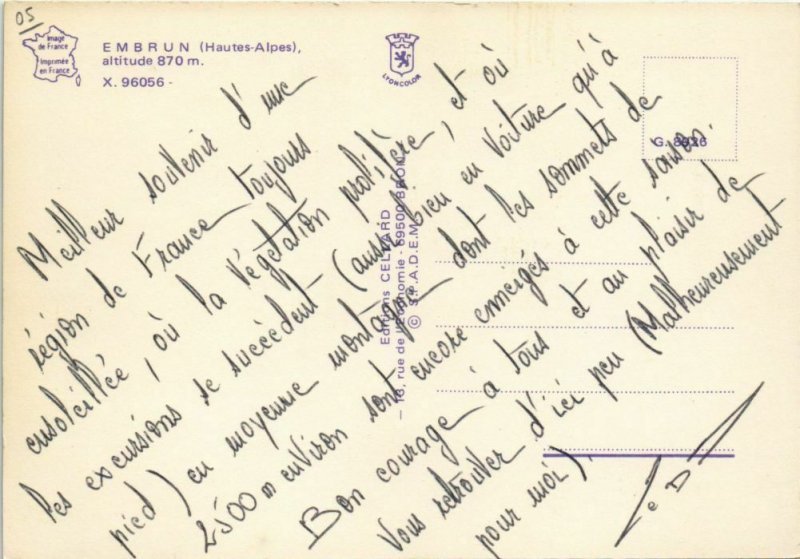 05
Image
de France
Imprimée
en France
EMBRUN (Hautes-Alpes),
altitude 870 m.
X. 96056 -
LYONCOLOR
G. 8926
Meilleur souvenir d'une
région de France toujours
ensoleillée, où la végétation prolifère, et où
les excursions se succèdent (aussi bien en voiture qu'à
pied) en moyenne montagne dont les sommets de
2500 m environ sont encore enneigés à cette saison.
Bon courage à tous et au plaisir de
vous retrouver d'ici peu (Malheureusement
pour moi).
Editions CELLARD
— 18, rue de l'Economie - 69500 BRON
© S.P.A.D.E.M.